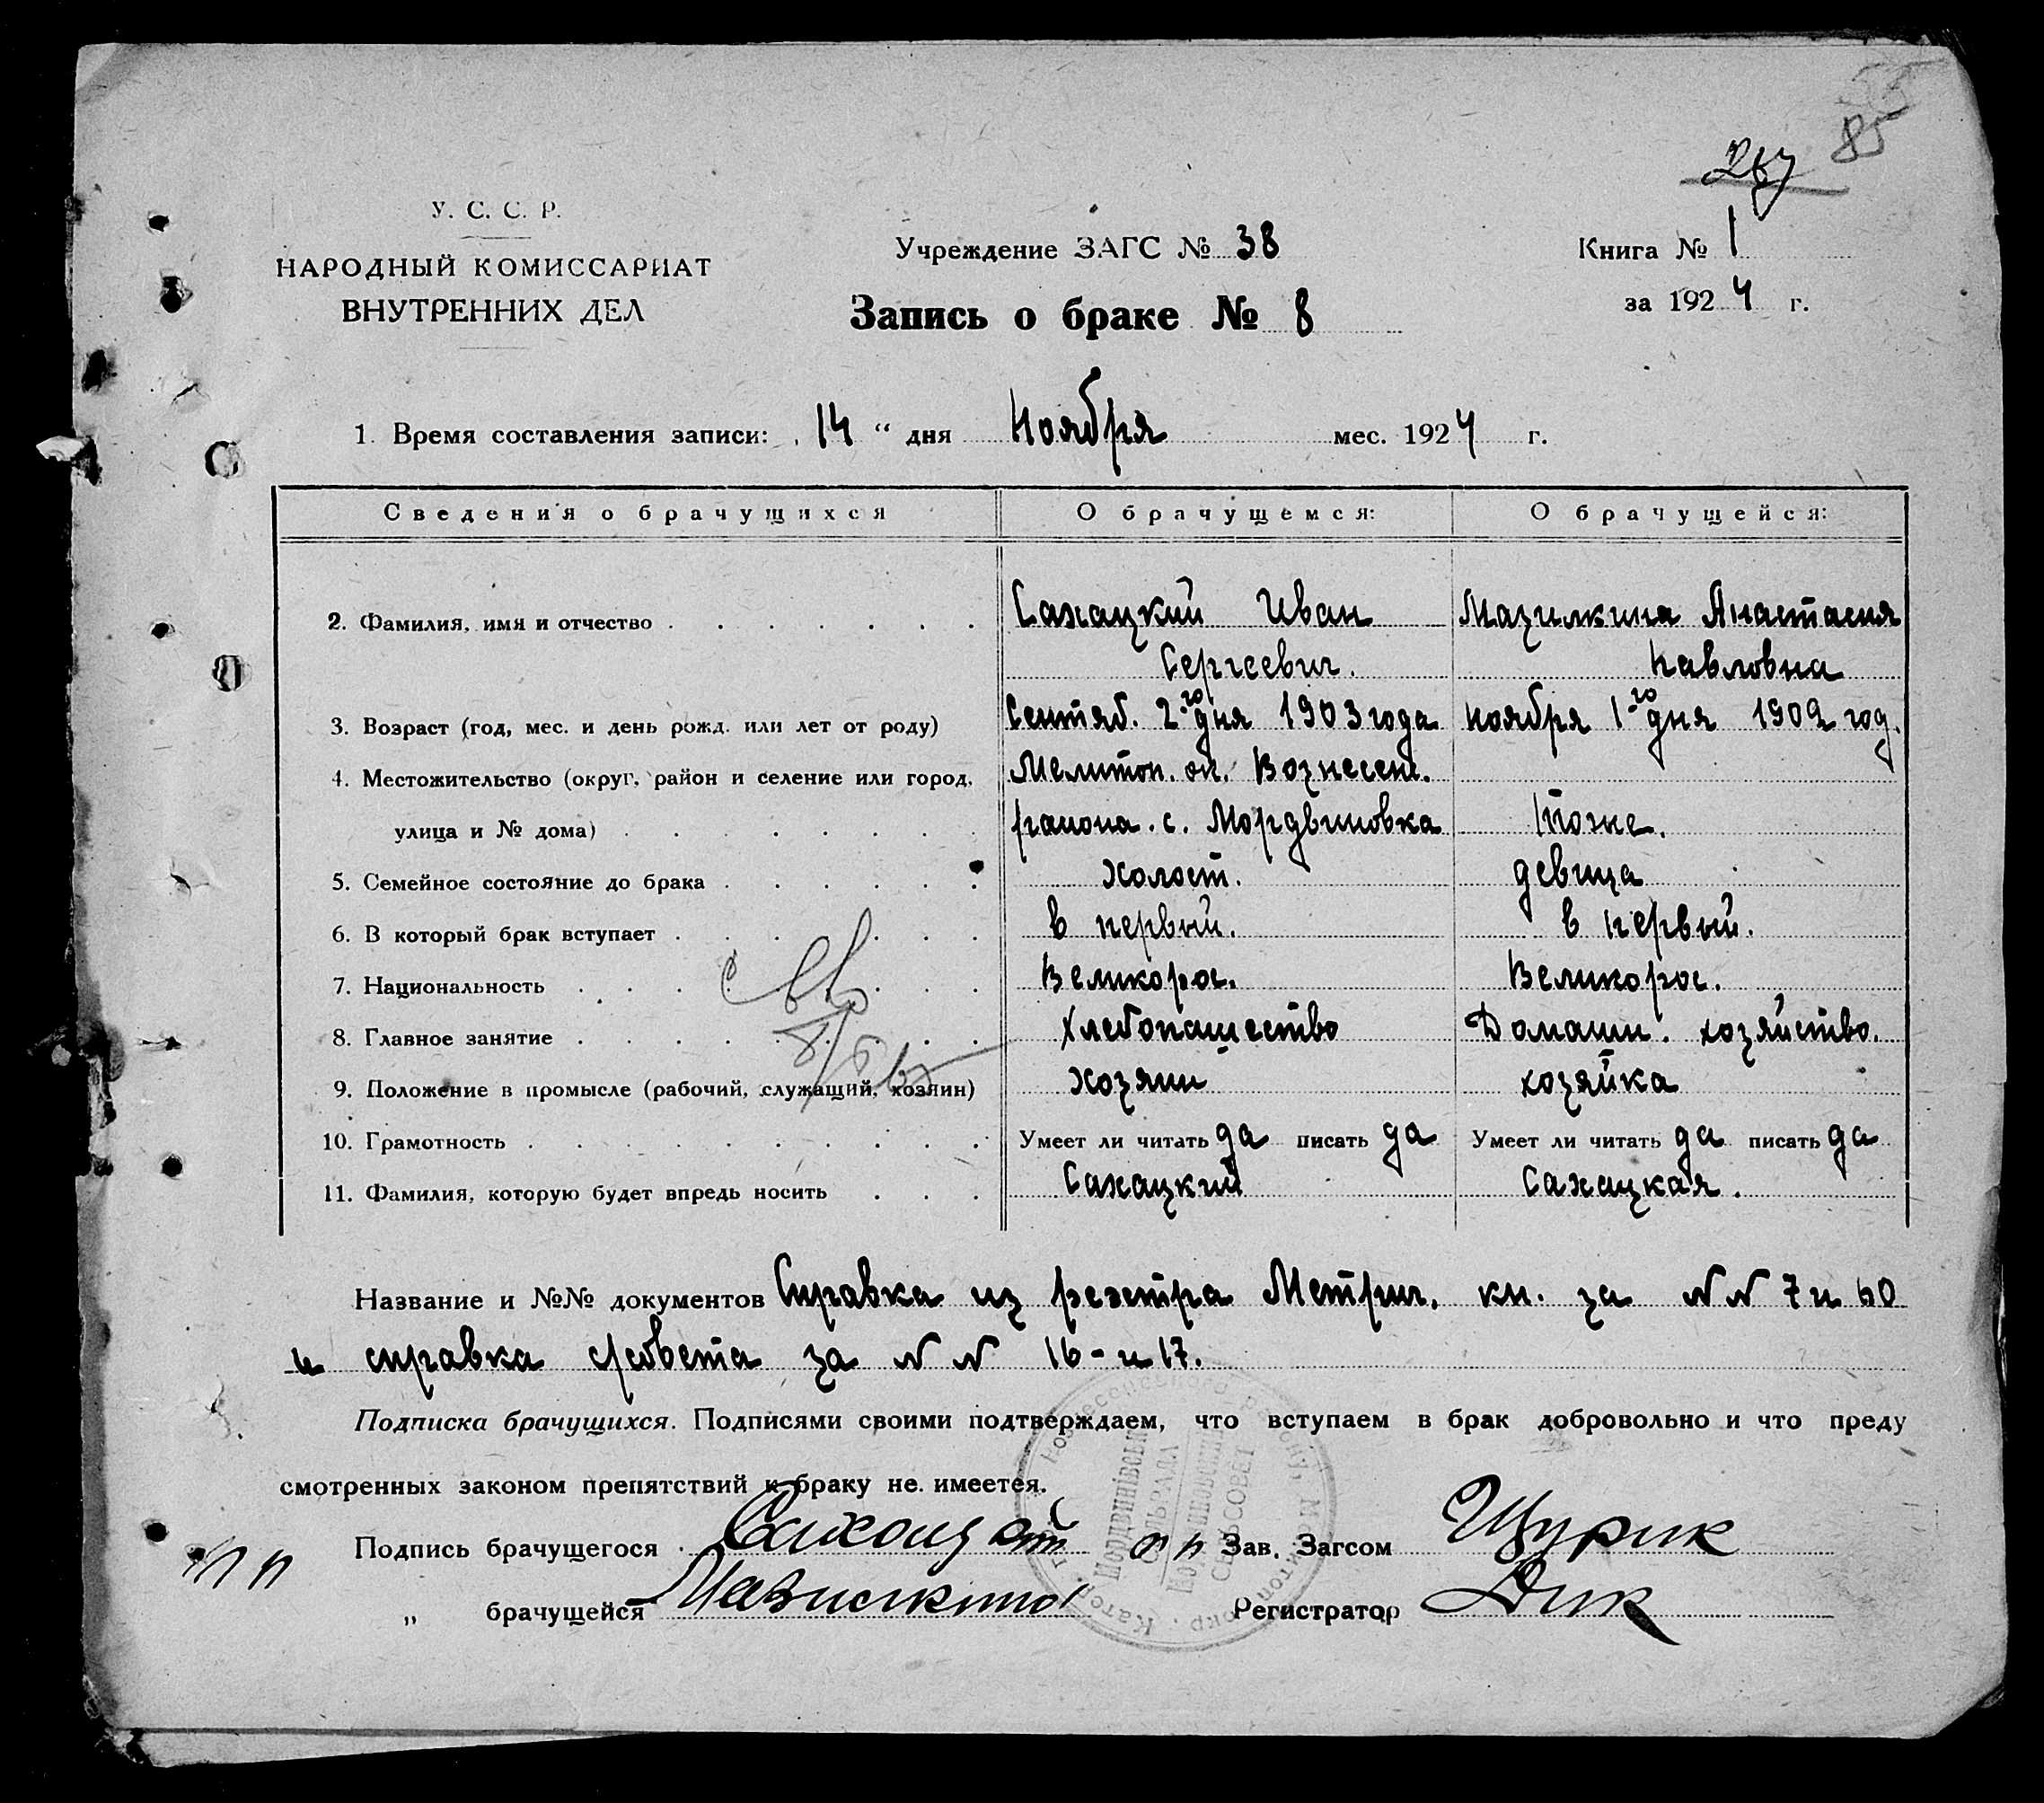 85
267
У. С. С. Р.
НАРОДНЫЙ КОМИССАРИАТ
ВНУТРЕННИХ ДЕЛ
Учреждение ЗАГС № 38
Запись о браке № 8
Книга № 1
за 1924 г.
1. Время составления записи: 14 " дня Ноября мес. 1924 г.
Сведения о брачущихся О брачущемся: О брачущейся:
2. Фамилия, имя и отчество . . . . . . . Сахацкий Иван Мазилкина Анастасия
Сергеевич. Павловна
3. Возраст (год, мес. и день рожд. или лет от роду) Сентяб. 2-го дня 1903 года ноября 1-го дня 1902 год.
4. Местожительство (округ, район и селение или город, Мелитоп. ок. Вознесен.
улица и № дома) . . . . . . . . района. с. Мордвиновка Тоже.
5. Семейное состояние до брака . . . . . . Холост. девица
6. В который брак вступает . . . . . . . в первый. в первый.
7. Национальность . . . . . . . . . Великорос. Великорос.
8. Главное занятие . . . . . . . . . Хлебопашество Домашн. хозяйство.
9. Положение в промысле (рабочий, служащий, хозяин) Хозяин хозяйка
10. Грамотность . . . . . . . . . . Умеет ли читать да писать да Умеет ли читать да писать да
11. Фамилия, которую будет впредь носить . . . Сахацкий Сахацкая.
Название и №№ документов Справка из реэтра Метрич. кн. за N N 7 и 60
и справка с/совета за N N 16 - и 17.
Подписка брачущихся. Подписями своими подтверждаем, что вступаем в брак добровольно и что преду
смотренных законом препятствий к браку не имеется.
Подпись брачущегося Зав. Загсом Щурик
„ брачущейся Мазилкина Регистратор Дик
Мордвинівська
СІЛЬРАДА
СЕЛЬСОВЕТ